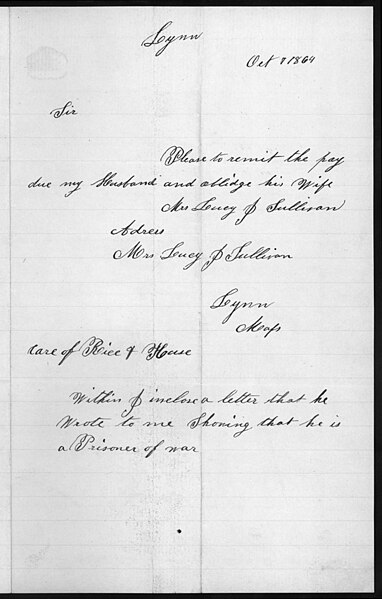 Lynn
Oct 1 1864
Sir
Please to remit the pay
due my Husband and oblidge his Wife
Mrs Lucy J Sullivan
Adress
Mrs Lucy J Sullivan
Lynn
Mass
care of Rice & House
Within I inclose a letter that he
Wrote to me Showing that he is
a Prisoner of war